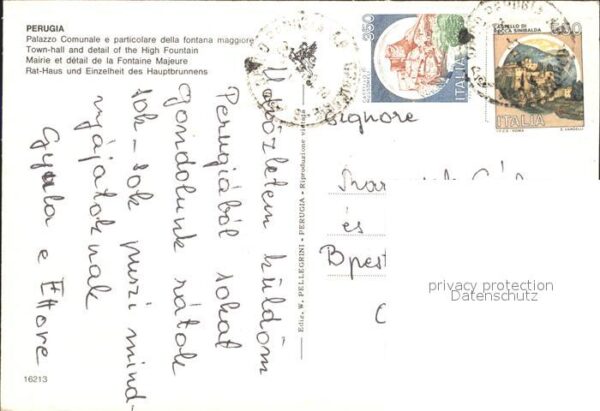 PERUGIA
Palazzo Comunale e particolare della fontana maggiore
Town-hall and detail of the High Fountain
Mairie et détail de la Fontaine Majeure
Rat-Haus und Einzelheit des Hauptbrunnens
Üdvözletem küldöm
Perugiából sokat
gondolunk rátok
sok-sok puszi mind-
nyájatoknak
Gyula e Ettore
16213
Ediz. W. PELLEGRINI - PERUGIA - Riproduzione vietata
350
ITALIA
ROCCA SINIBALDA
ITALIA
I.P.Z.S. - ROMA
Signore
és
Bpest
privacy protection
Datenschutz